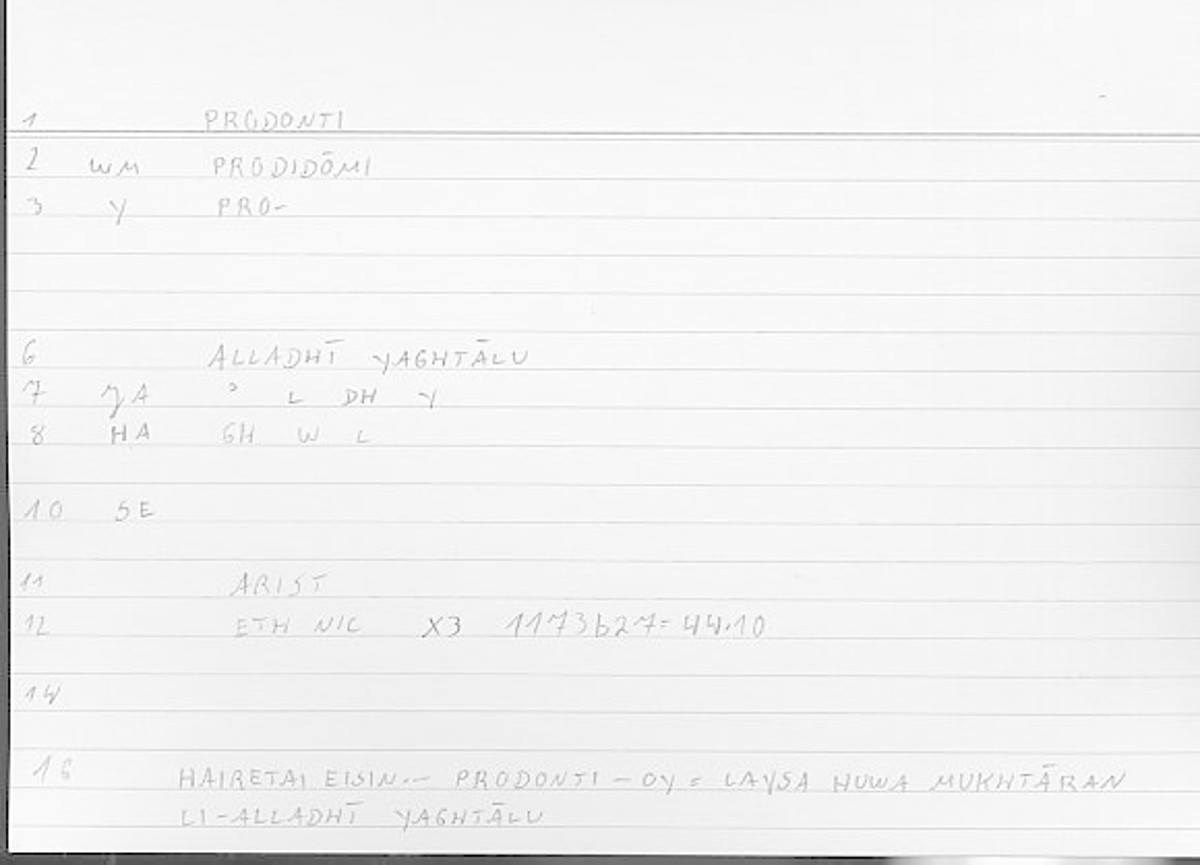 1 PRODONTI
2 WM PRODIDŌMI
3 Y PRO-
6 ALLADHĪ YAGHTĀLU
7 JA ʾ L DH Y
8 HA GH W L
10 SE
11 ARIST
12 ETH NIC X3 1173b27=44.10
14
16 HAIRETAI EISIN.– PRODONTI – OY = LAYSA HUWA MUKHTĀRAN
LI-ALLADHĪ YAGHTĀLU